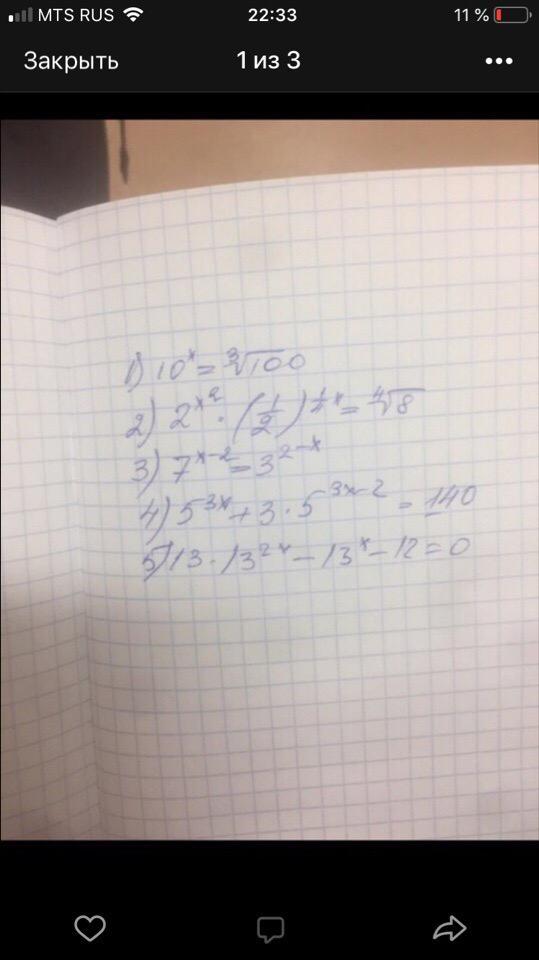 MTS RUS 22:33 11 %
Закрыть 1 из 3 •••
1) 10^x = ∛100
2) 2^(x^2) · (1/2)^(1/4 x) = ∜8
3) 7^(x-2) = 3^(2-x)
4) 5^(3x) + 3 · 5^(3x-2) = 140
5) 13 · 13^(2x) - 13^x - 12 = 0